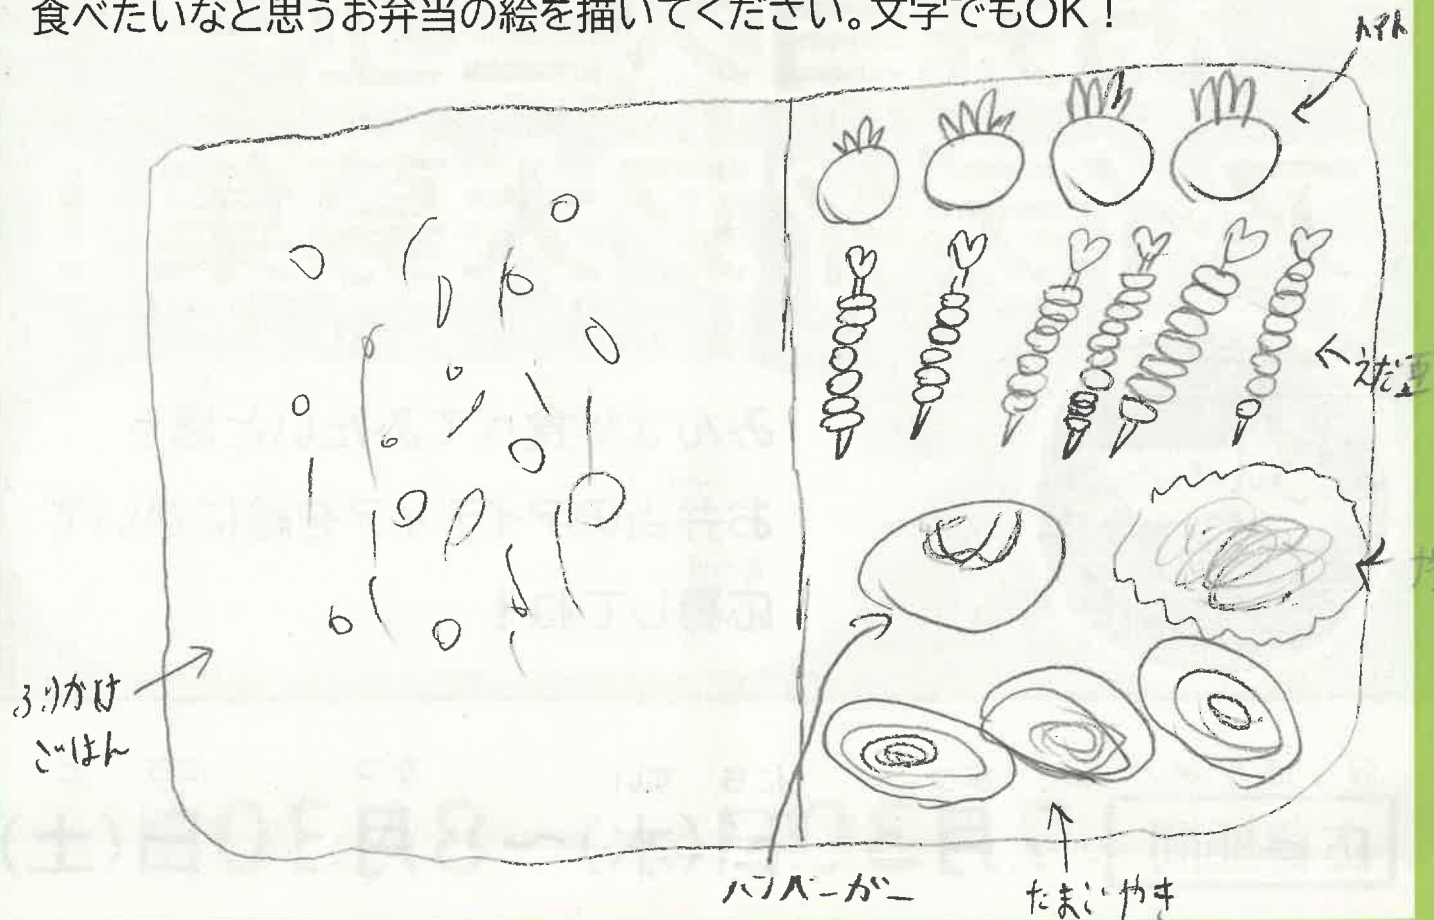 食べたいなと思うお弁当の絵を描いてください。文字でもOK!
トマト
えだ豆
ふりかけ
ごはん
ハンバーガー
たまごやき